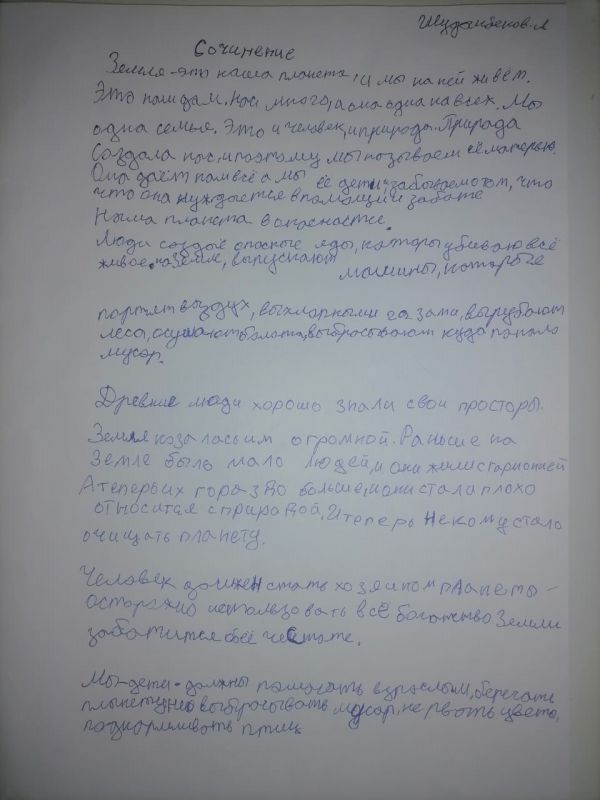 Шудаибеков.Л
Сочинение
Земля-это наша планета, и мы на ней живём.
Это наш дам. Нас много, а она одна на всех. Мы
одна семья. Это и человек, и природа. Прирада
Создала нас, и поэтому мы называем её матерью.
Она даёт нам всё а мы её дети, забываем о том, что
что она нуждается в памащи и заботе
Наша планета в опаснастье.
Люди создоё опасные яды, каторы убиваю всё
живое на Земле, выпускают машины, каторые
портят вуздух, выхлапными газами, вырубают
леса, осушают балата, выбрасывают куда папало
мусар.
Древние люди хорошо знали свои просторы.
Земля козалась им огромной. Раньше на
Земле было мало людей, и они жили с гармонией
А теперь их гораздо больше, и они стали плохо
относится с природой. И теперь некому стало
очищать планету.
Человек должен стать хозяином планеты-
осторожно использовать всё богатьво Земли
заботится о её чистате.
Мы-дети-должны памагать взрослым, беречь
планету, не выбрасывать мусор, не рвать цветы,
подкармливать птиц